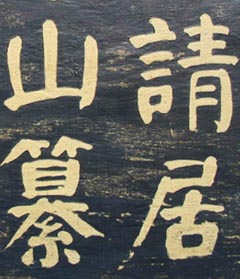 請居
山纂